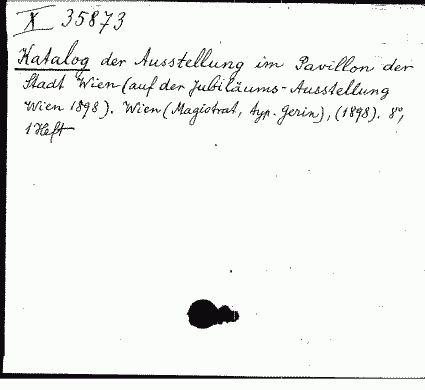 X 35873
Katalog der Ausstellung im Pavillon der
Stadt Wien (auf der Jubiläums-Ausstellung
Wien 1898). Wien (Magistrat, typ. Gerin), (1898). 8°,
1 Heft